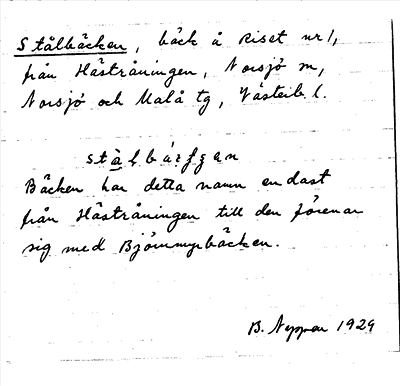 Stålbäcken, bäck å Riset nr 1,
från Hästråningen, Norsjö sn,
Norsjö och Malå tg, Västerb. l.
Bäcken har detta namn endast
från Hästråningen till den förenar
sig med Björnmyrbäcken.
B. 1929